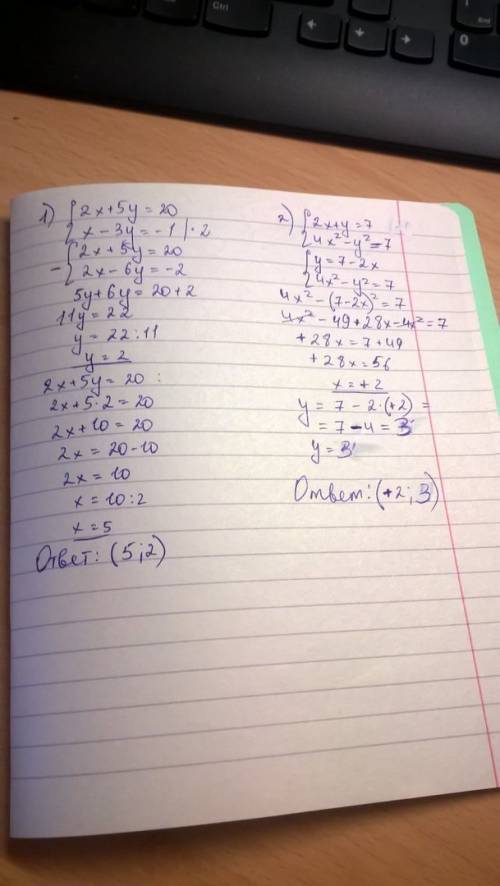 Ctrl
0
1) { 2x+5y = 20
x - 3y = -1 | · 2
- { 2x + 5y = 20
2x - 6y = -2
5y + 6y = 20 + 2
11y = 22
y = 22 : 11
y = 2
2x + 5y = 20 :
2x + 5 · 2 = 20
2x + 10 = 20
2x = 20 - 10
2x = 10
x = 10 : 2
x = 5
Ответ: (5; 2)
2) { 2x+y = 7
4x² - y² = 7
{ y = 7 - 2x
4x² - y² = 7
4x² - (7-2x)² = 7
4x² - 49 + 28x - 4x² = 7
+ 28x = 7 + 49
+ 28x = 56
x = + 2
y = 7 - 2 · (+2) =
= 7 - 4 = 3
y = 3
Ответ: (+2; 3)